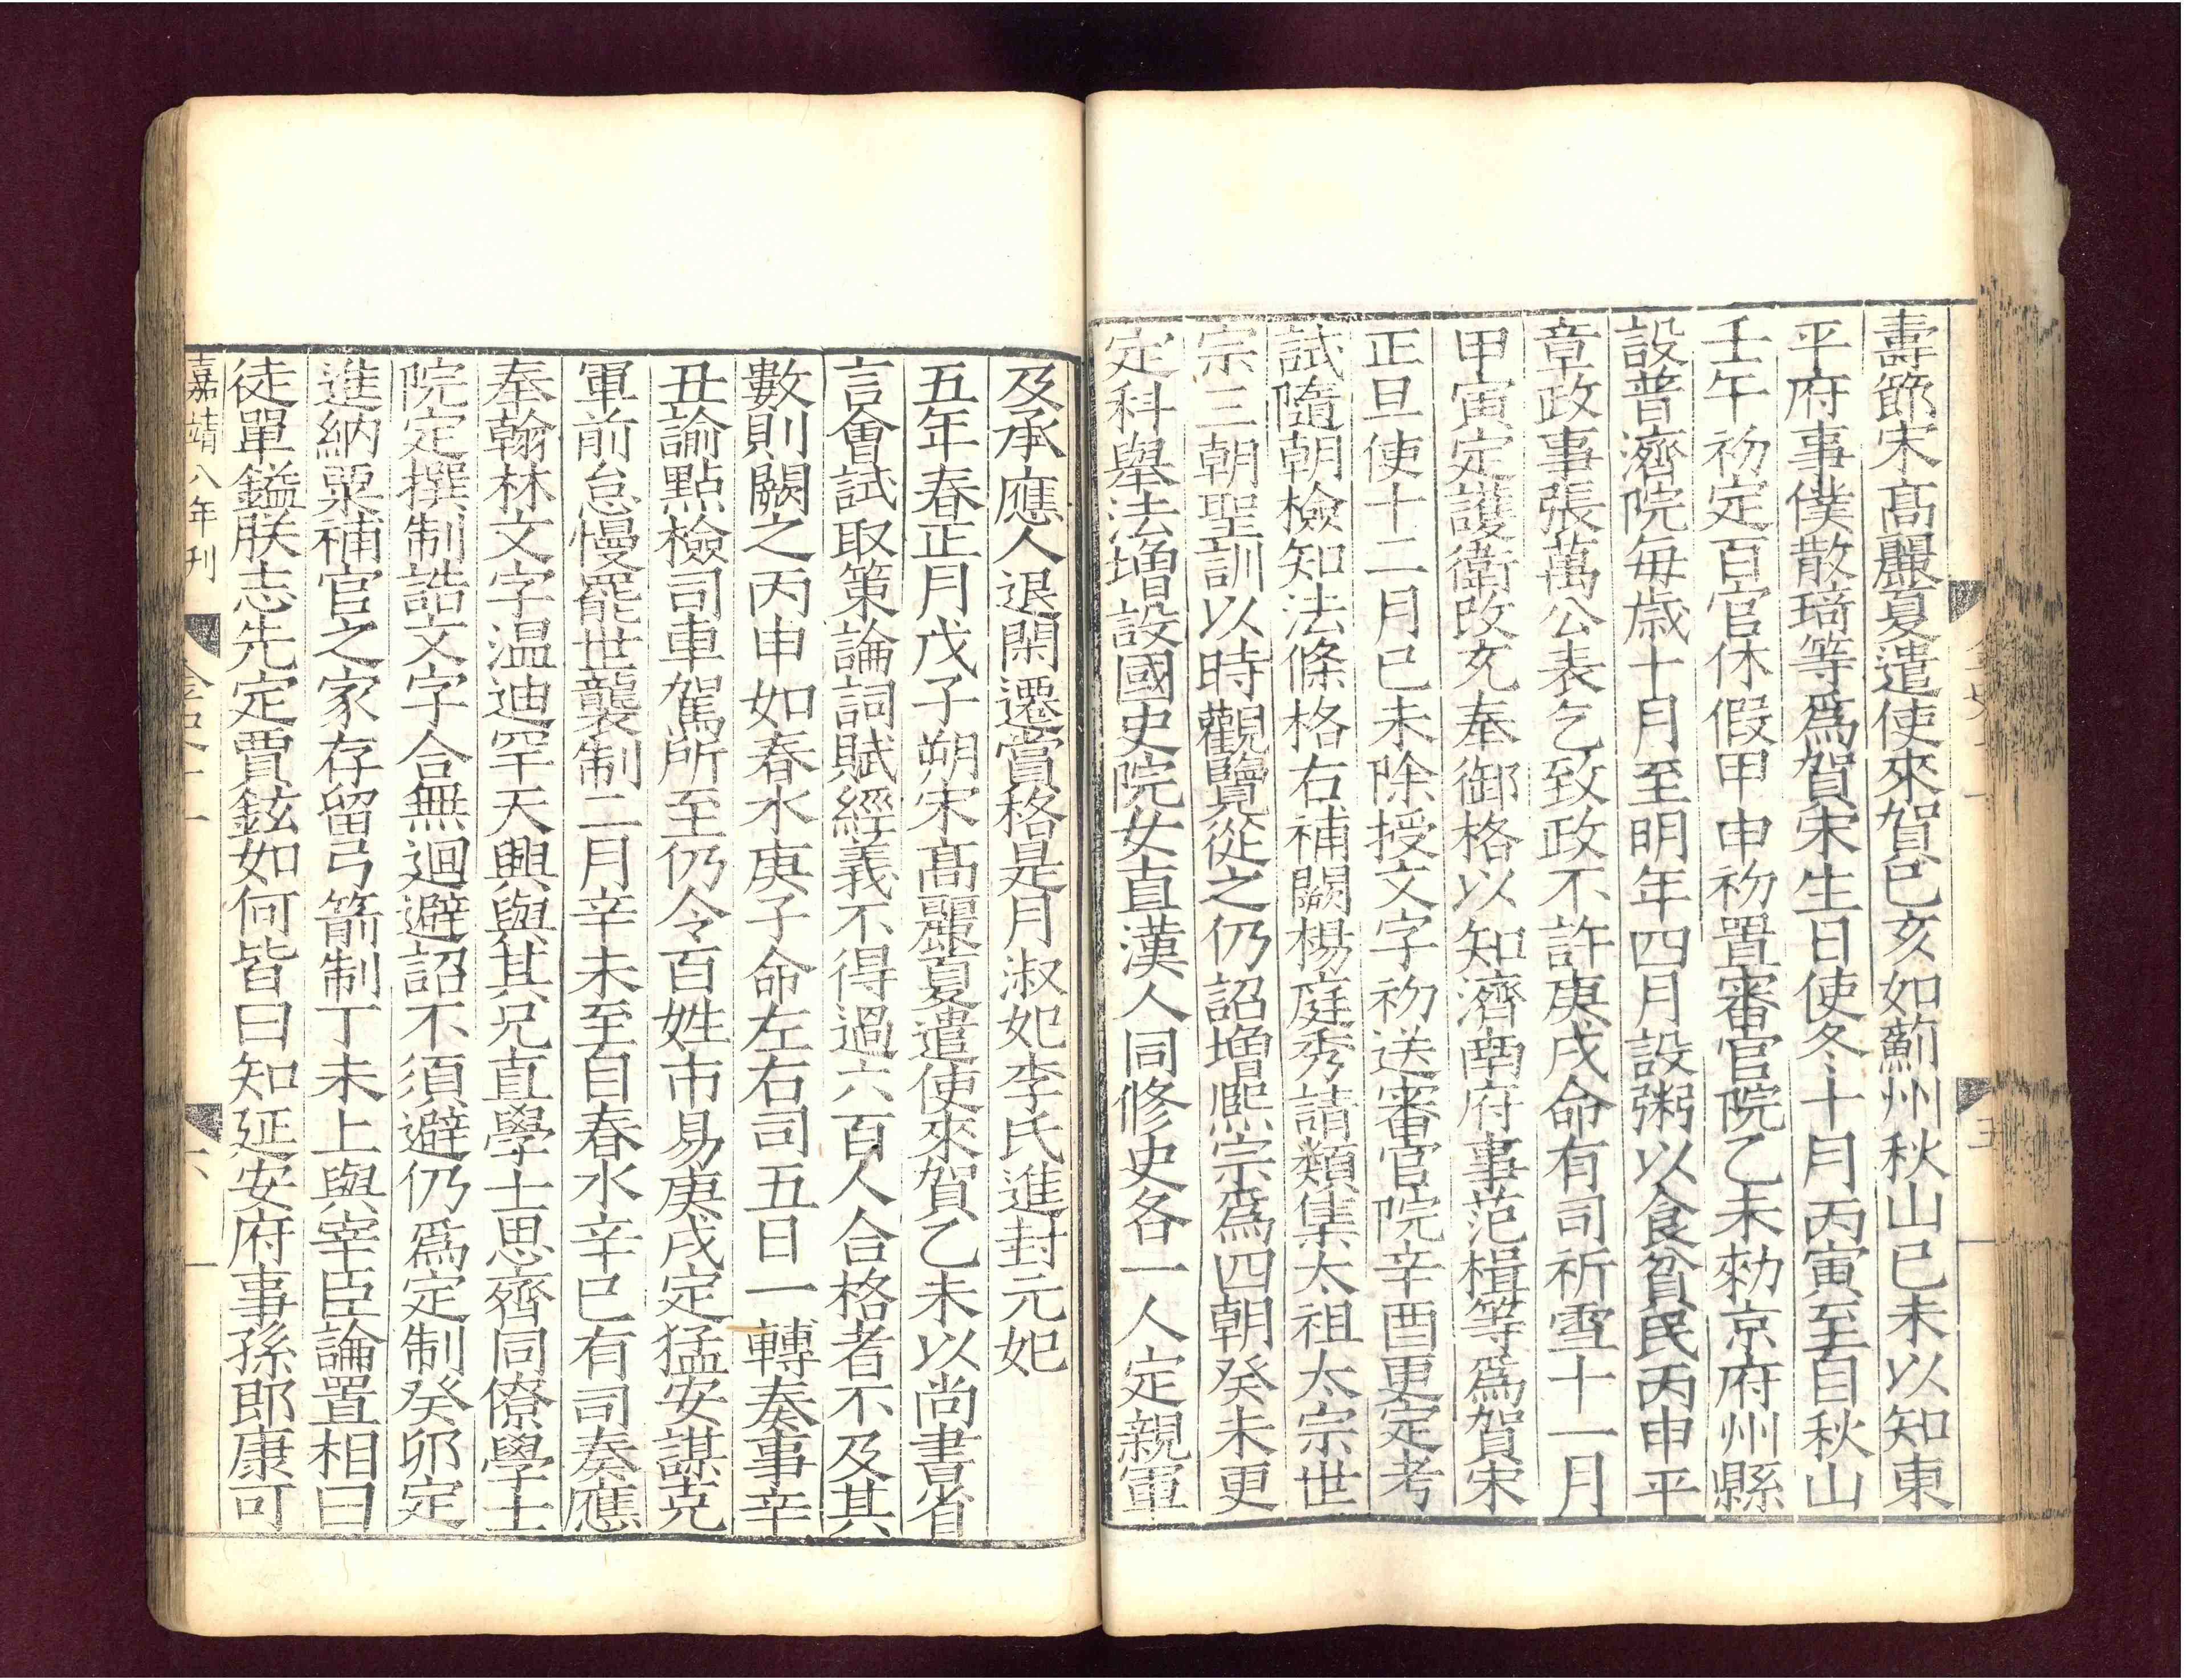 壽節宋高麗夏遣使來賀己亥如薊州秋山己未以知東
平府事僕散琦等爲賀宋生日使冬十月丙寅至自秋山
壬午初定百官休假甲申初置審官院乙未勑京府州縣
設普濟院每歲十月至明年四月設粥以食貧民丙申平
章政事張萬公表乞致政不許庚戌命有司祈雪十一月
甲寅定護衛改充奉御格以知濟南府事范楫等爲賀宋
正旦使十二月己未除授文字初送審官院辛酉更定考
試隨朝檢知法條格右補闕楊庭秀請類集太祖太宗世
宗三朝聖訓以時觀覽從之仍詔增熙宗爲四朝癸未更
定科舉法增設國史院女直漢人同修史各一人定親軍
及承應人退閑遷賞格是月淑妃李氏進封元妃
五年春正月戊子朔宋高麗夏遣使來賀乙未以尚書省
言會試取策論詞賦經義不得過六百人合格者不及其
數則闕之丙申如春水庚子命左右司五日一轉奏事辛
丑諭點檢司車駕所至仍令百姓市易庚戌定猛安謀克
軍前怠慢罷世襲制二月辛未至自春水辛巳有司奏應
奉翰林文字温迪罕天興與其兄直學士思齊同僚學士
院定撰制誥文字合無迴避詔不須避仍爲定制癸卯定
進納粟補官之家存留弓箭制丁未上與宰臣論置相曰
徒單鎰朕志先定賈鉉如何皆曰知延安府事孫郎康可
嘉靖八年刊
金史十一
六
五